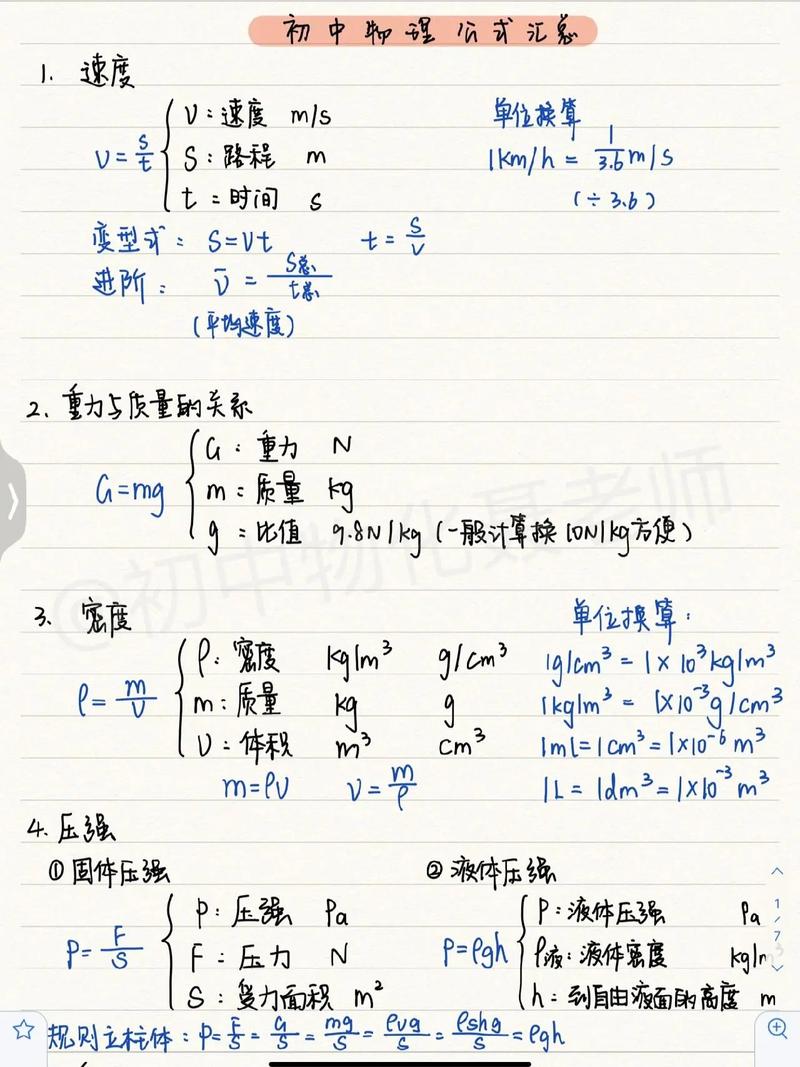 初中物理公式汇总
1. 速度
V = s/t { V：速度 m/s
S：路程 m
t：时间 s
单位换算
1Km/h = 1/3.6 m/s
(÷3.6)
变型式：S=Vt t = S/V
进阶：v̄ = S总/t总
(平均速度)
2. 重力与质量的关系
G=mg { G：重力 N
m：质量 kg
g：比值 9.8N/kg (一般计算换10N/kg方便)
@初中物化聂老师
3. 密度
ρ = m/V { ρ：密度 kg/m³ g/cm³
m：质量 kg g
V：体积 m³ cm³
m=ρV V = m/ρ
单位换算：
1g/cm³ = 1×10³kg/m³
1kg/m³ = 1×10⁻³g/cm³
1ml=1cm³=1×10⁻⁶m³
1L=1dm³=1×10⁻³m³
4. 压强
① 固体压强
P = F/S { P：压强 Pa
F：压力 N
S：受力面积 m²
② 液体压强
P=ρgh { P：液体压强 Pa
ρ液：液体密度 kg/m³
h：到自由液面的高度 m
1/7
规则立柱体：P = F/S = G/S = mg/S = ρVg/S = ρShg/S = ρgh